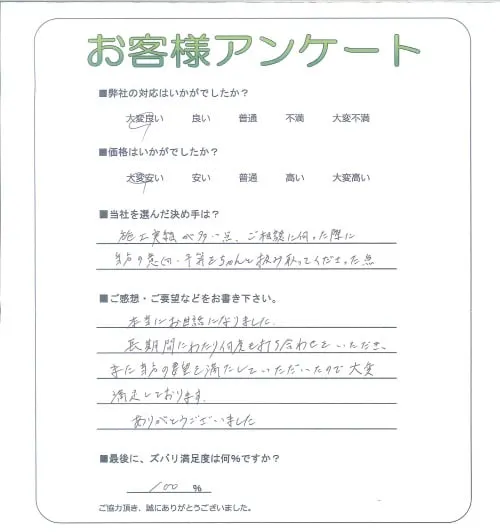 お客様アンケート
■弊社の対応はいかがでしたか？
大変良い 良い 普通 不満 大変不満
■価格はいかがでしたか？
大変安い 安い 普通 高い 大変高い
■当社を選んだ決め手は？
施工実績が多い点、ご相談に伺った際に
当方の意向・予算をちゃんと汲み取ってくださった点
■ご感想・ご要望などをお書き下さい。
本当にお世話になりました。
長期間にわたり何度も打ち合わせをいただき、
また当方の要望を満たしていただいたので大変
満足しております。
ありがとうございました
■最後に、ズバリ満足度は何％ですか？
100 ％
ご協力頂き、誠にありがとうございました。